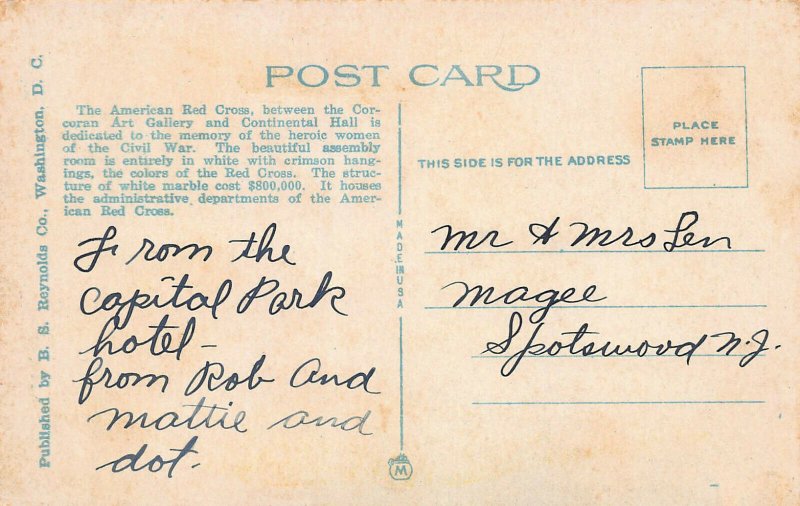 POST CARD
The American Red Cross, between the Cor-
coran Art Gallery and Continental Hall is
dedicated to the memory of the heroic women
of the Civil War. The beautiful assembly
room is entirely in white with crimson hang-
ings, the colors of the Red Cross. The struc-
ture of white marble cost $800,000. It houses
the administrative departments of the Amer-
ican Red Cross.
Published by B. S. Reynolds Co., Washington, D. C.
From the
Capital Park
hotel-
from Rob and
mattie and
dot.
MADE IN USA
M
PLACE
STAMP HERE
THIS SIDE IS FOR THE ADDRESS
Mr & Mrs Len
Magee
Spotswood N.J.